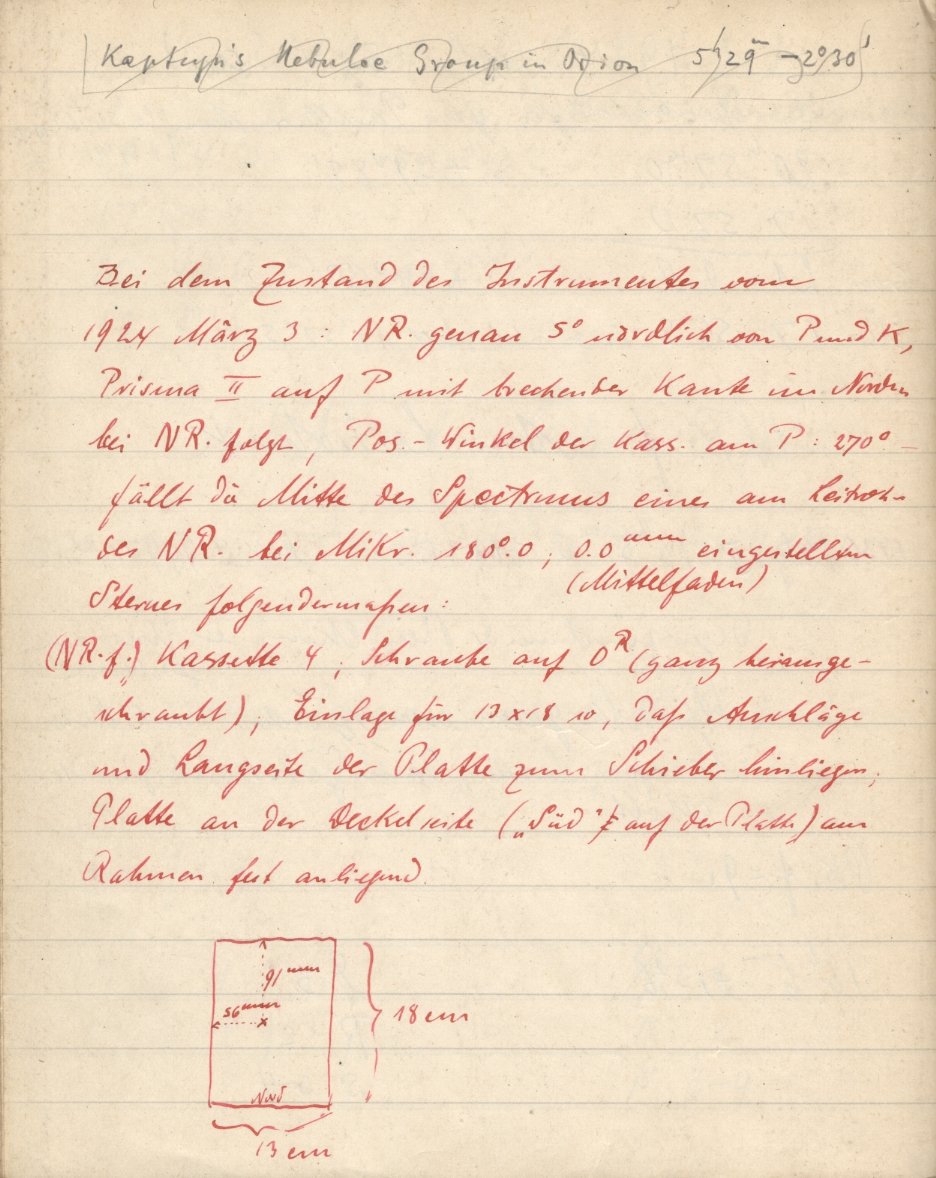 Kapteyn's Nebulae Group in Orion 5h 29m –2°30'
Bei dem Zustand des Instrumentes vom
1924 März 3 : NR. genau 5° nördlich von P und K,
Prisma II auf P mit brechender Kante im Norden
bei NR. folgt, Pos.-Winkel der Kass. am P : 270° –
fällt die Mitte des Spectrums eines am Leitroh-
des NR. bei Mikr. 180°.0, 0.0 mm eingestellten
(Mittelfaden)
Sternes folgendermaßen:
(NR.f.) Kassette 4, Schraube auf 0R (ganz herausge-
schraubt), Einlage für 13x18 so, daß Anschläge
und Langseite der Platte zum Schieber hinliegen,
Platte an der Deckelseite („Süd" auf der Platte) am
Rahmen fest anliegend.
91 mm
56 mm
x
18 cm
Nord
13 cm